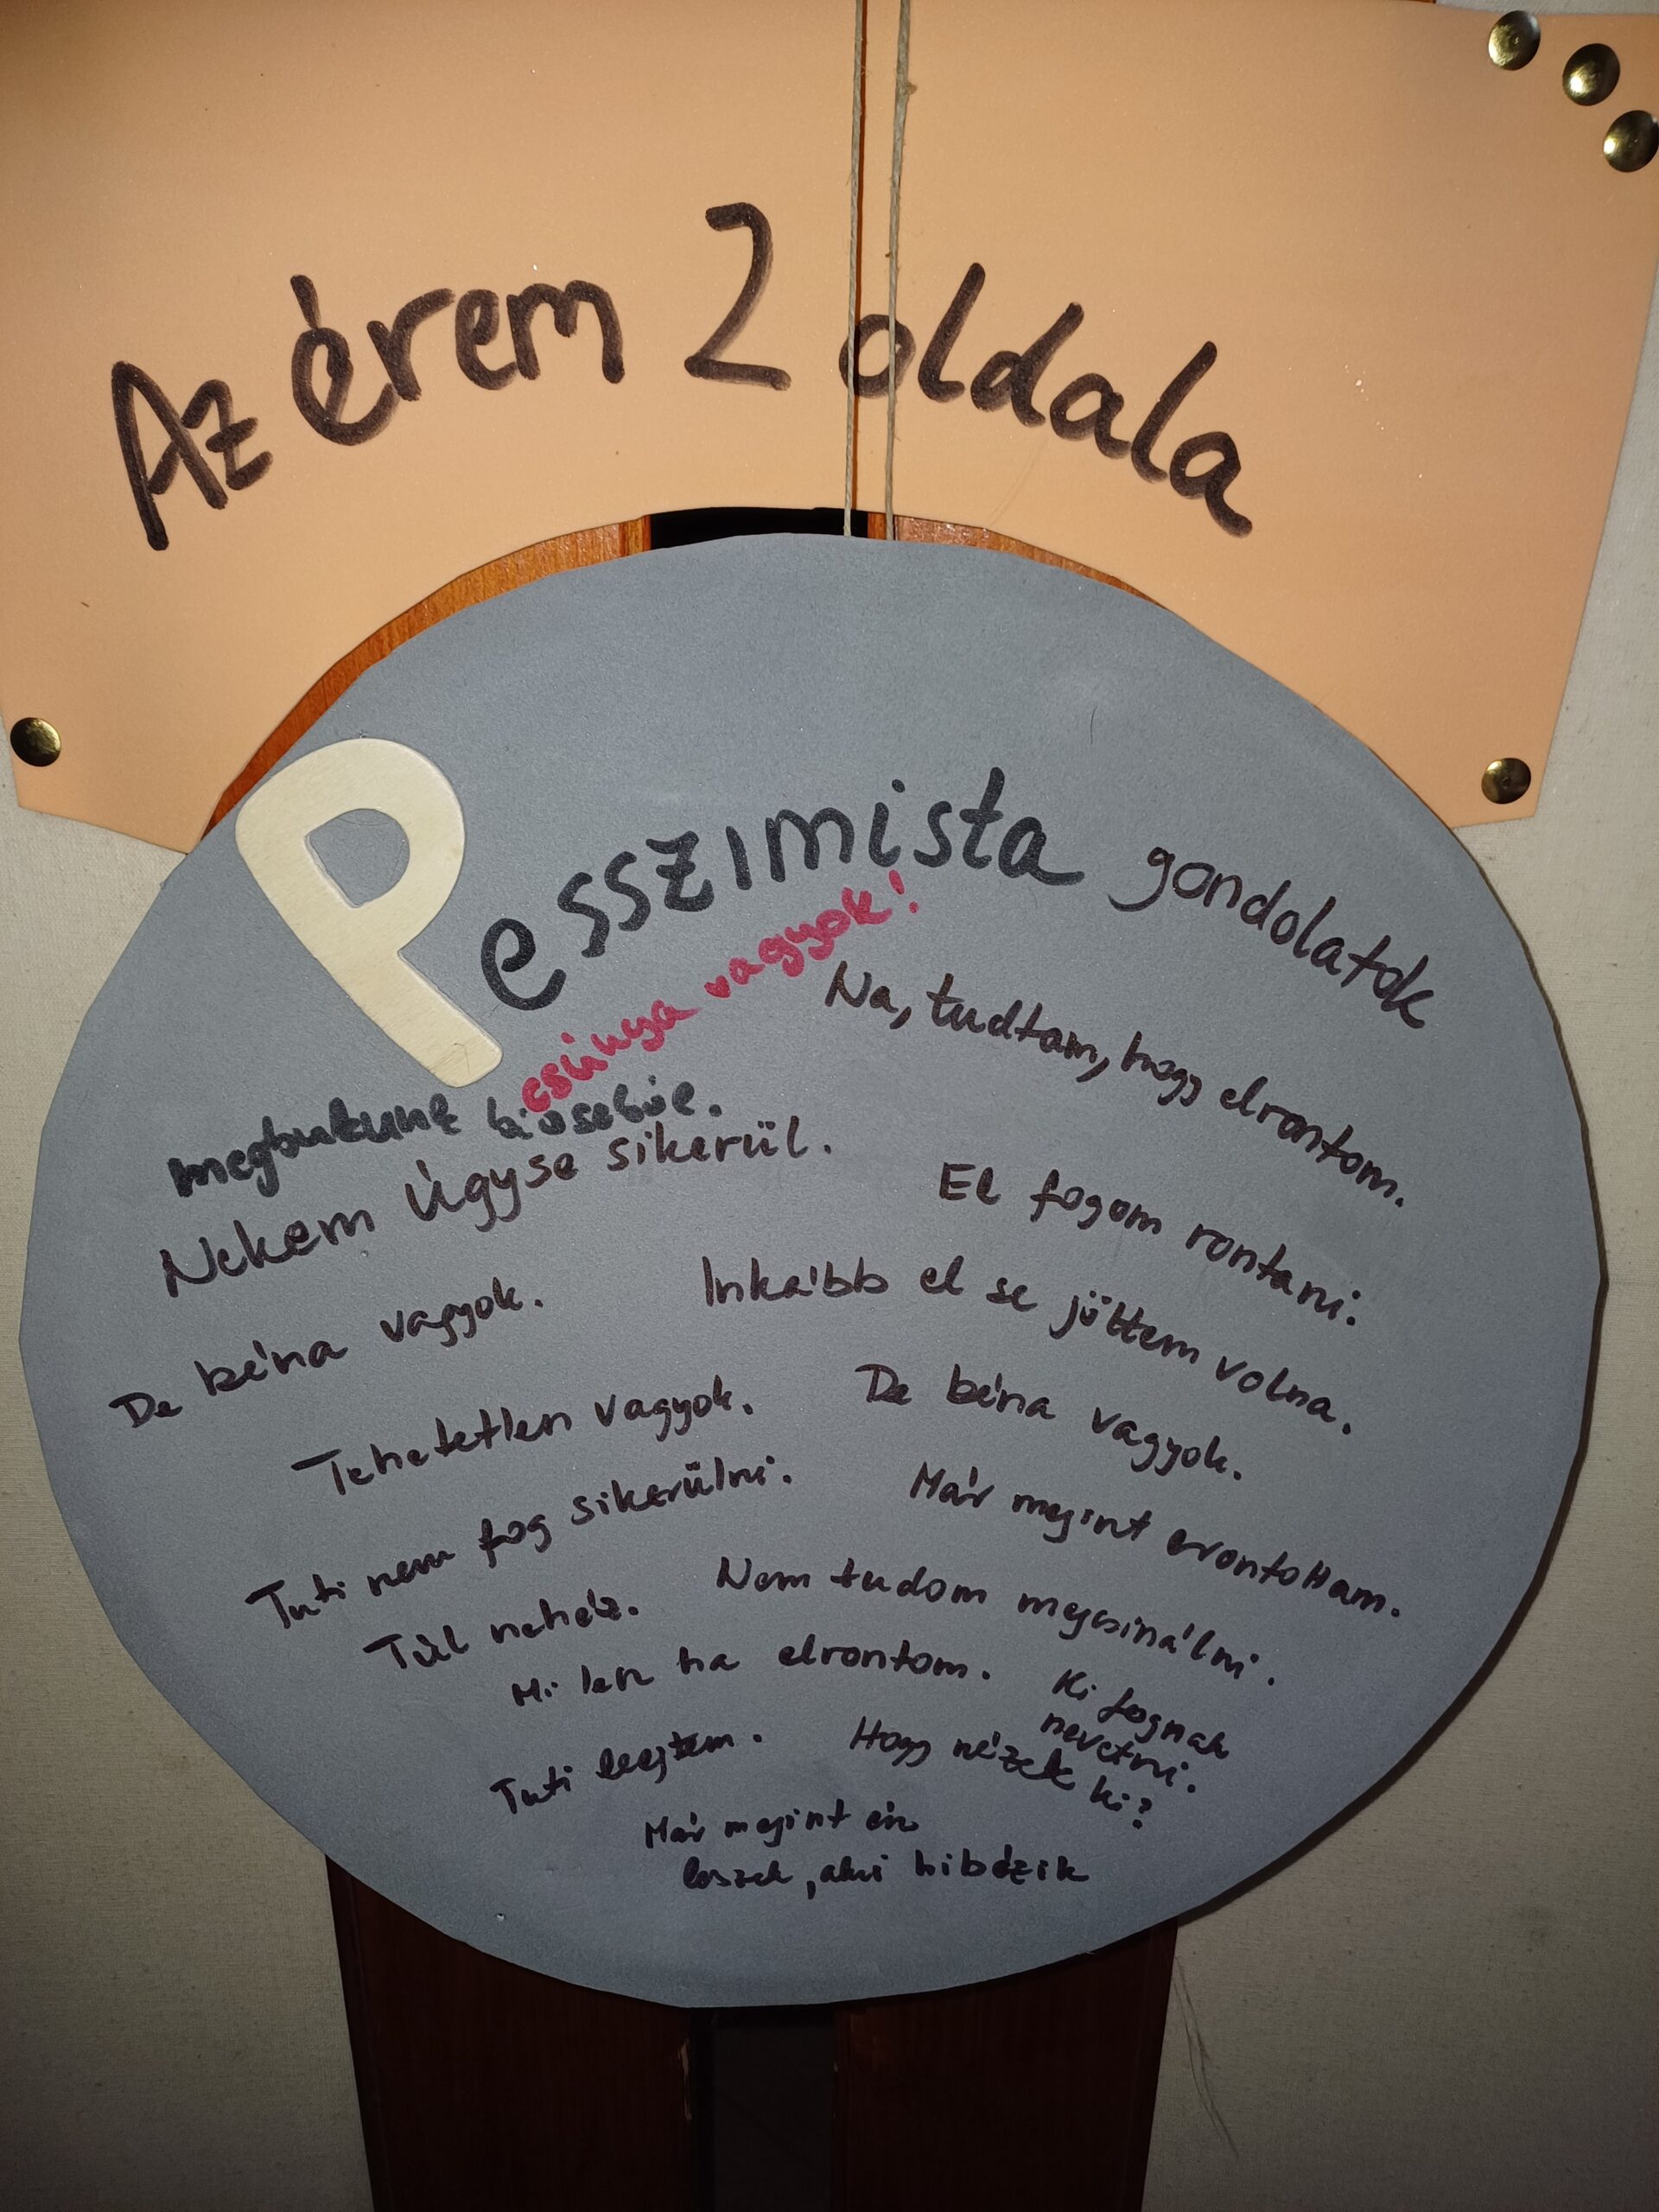 Az érem 2 oldala
Pesszimista gondolatok
csúnya vagyok!
Na, tudtam, hogy elrontom.
megbukunk
Nekem Úgyse sikerül.
El fogom rontani.
De béna vagyok.
Inkább el se jöttem volna.
Tehetetlen vagyok.
De béna vagyok.
Tuti nem fog sikerülni.
Már megint erontottam.
Túl nehéz.
Nem tudom megcsinálni.
Mi lesz ha elrontom.
Ki fognak
nevetni.
Tuti leejtem.
Hogy nézek ki?
Már megint én
leszek, aki hibázik